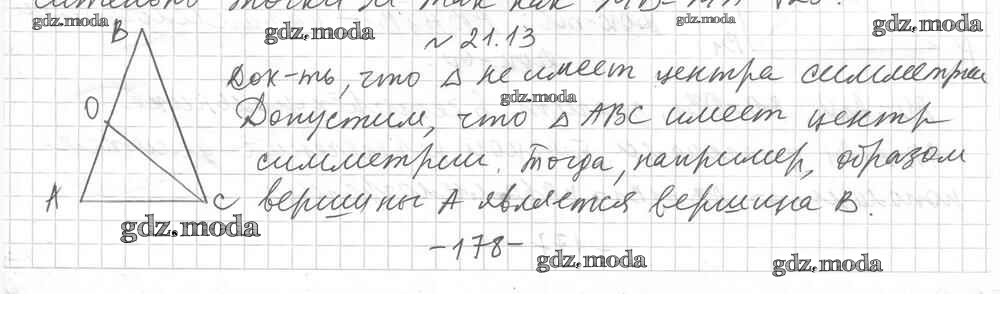 gdz.moda
gdz.moda
gdz.moda
gdz.moda
B
№ 21.13
Док-ть, что △ не имеет центра симметрии
gdz.moda
O
Допустим, что △ ABC имеет центр
симметрии. Тогда, например, образом
A
C
вершины A является вершина B.
gdz.moda
-178-
gdz.moda
gdz.moda